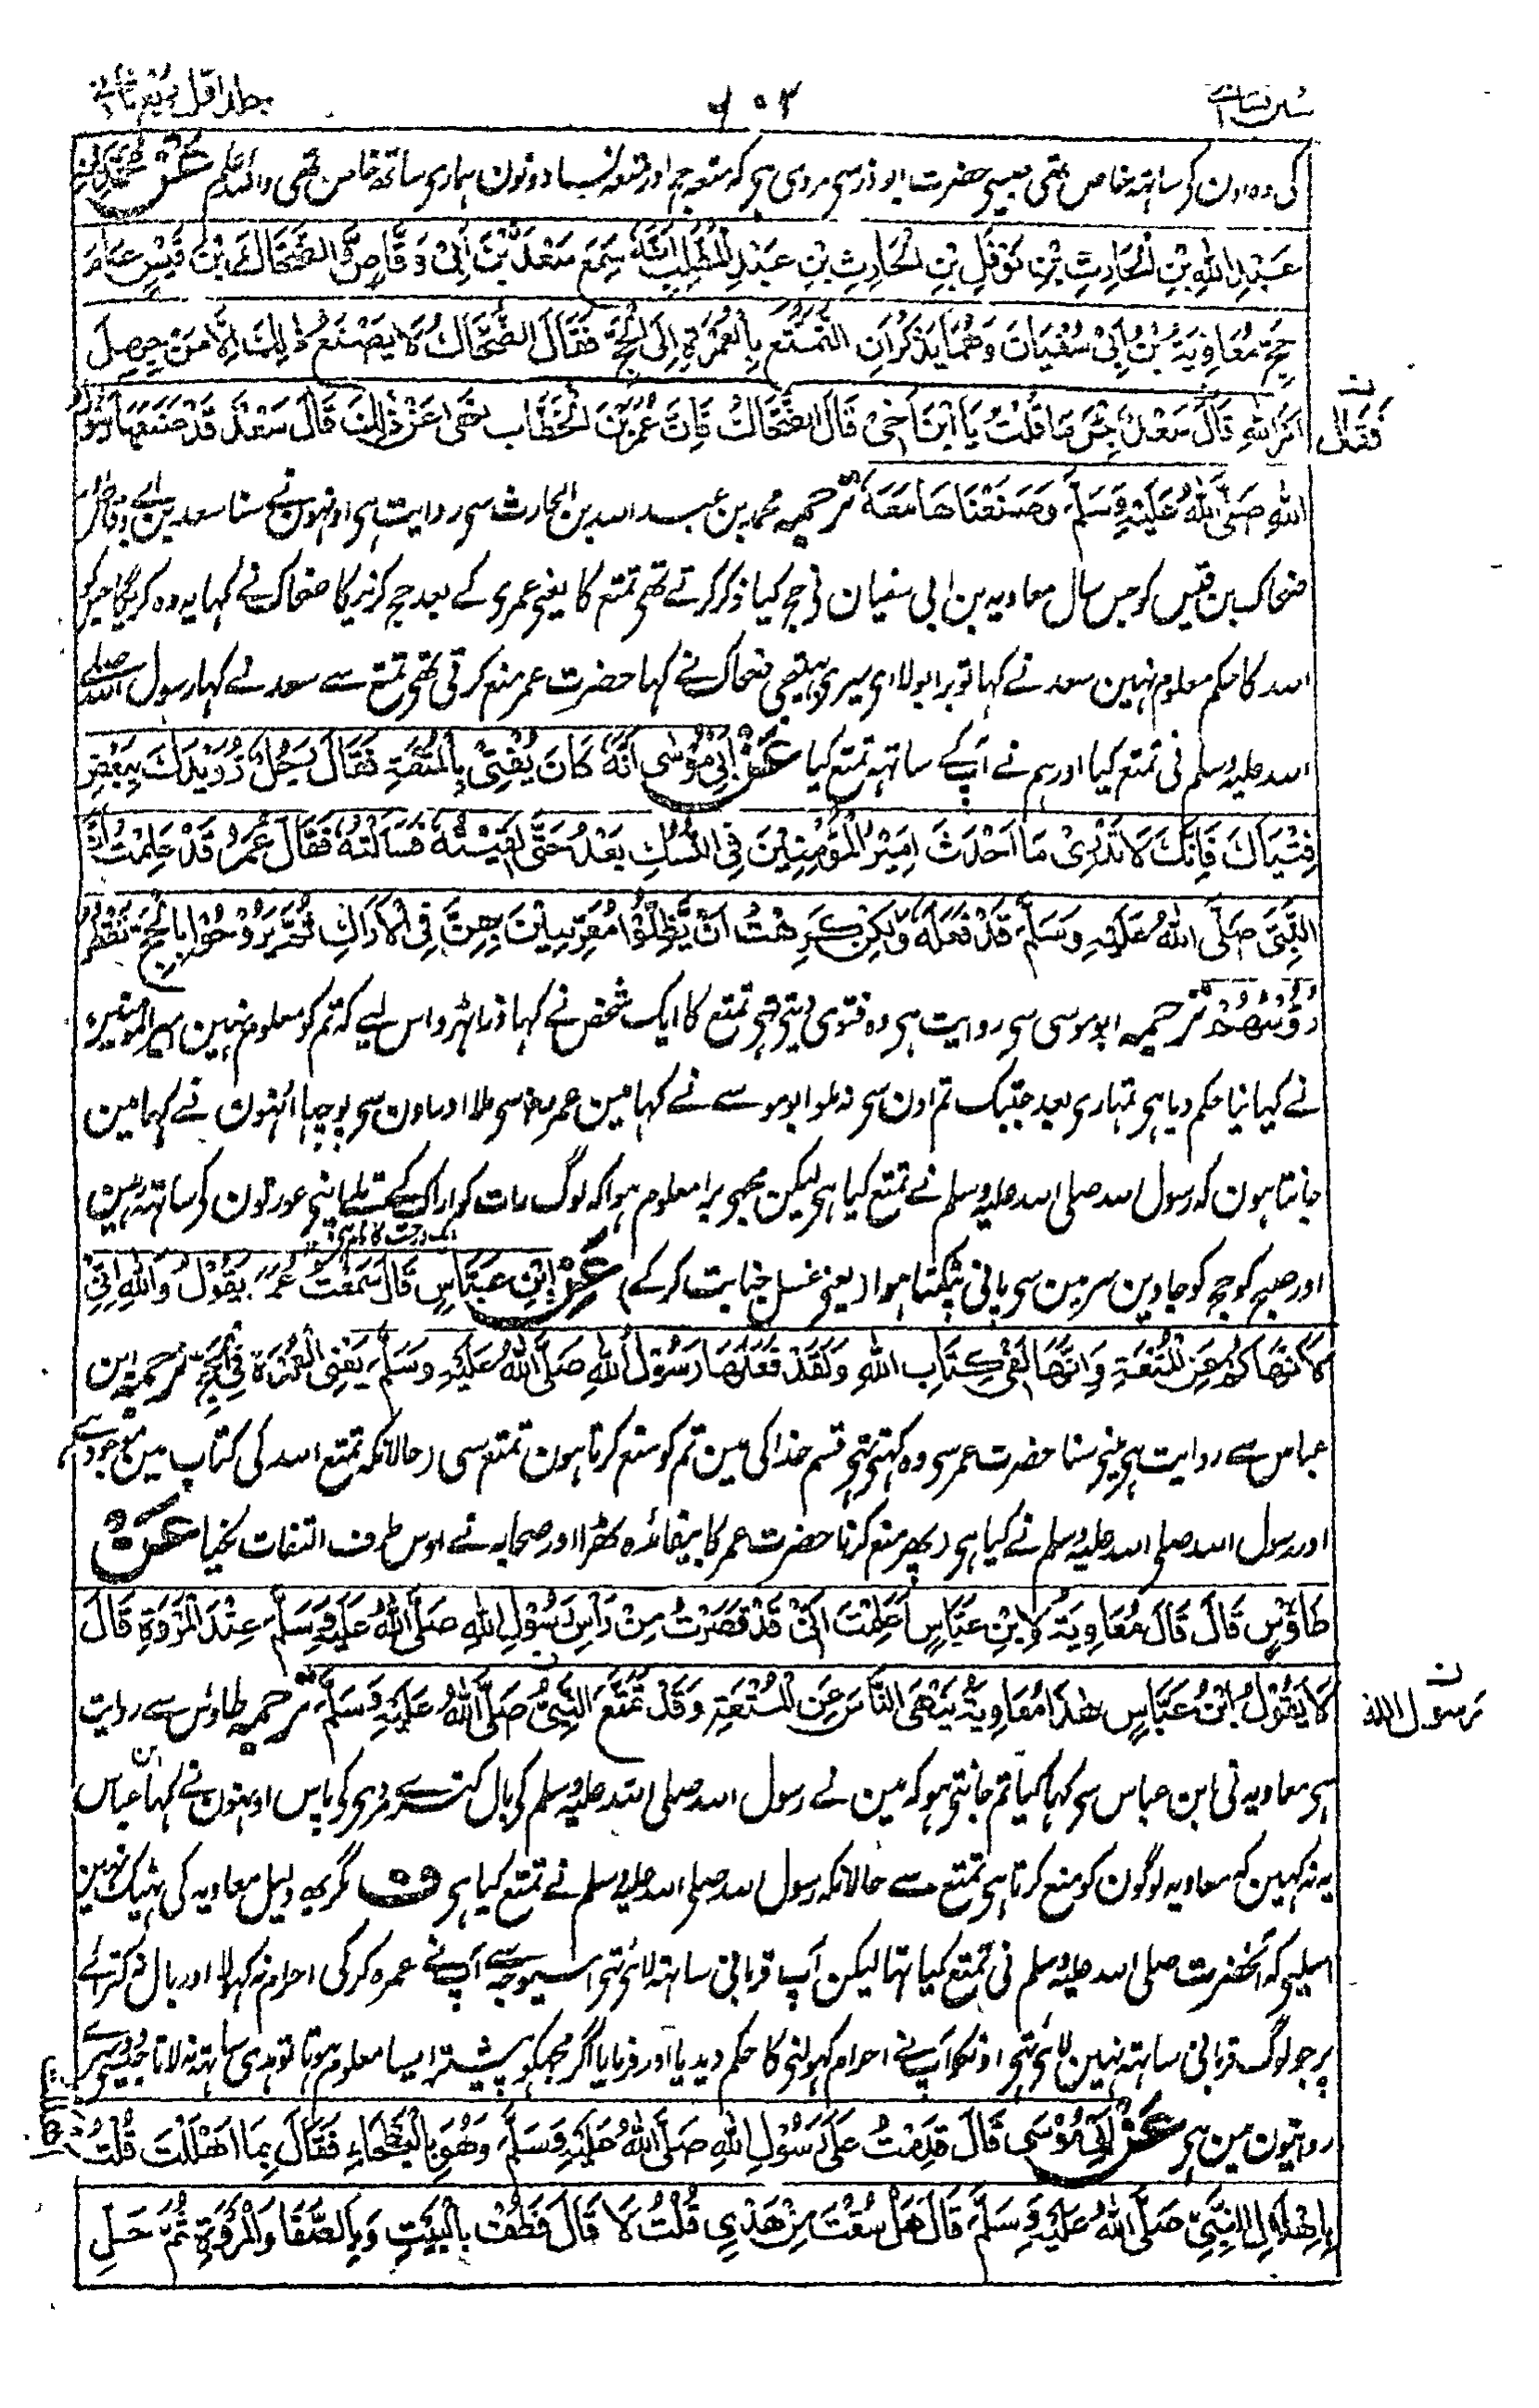 سنن نسائی ۶۰۲ جلد اول ربع ثانی
کی وہ اون کر ساتہہ خاص تھی جیسی حضرت ابوذر سی مروی ہی کہ متعہ حج اور متعہ نسا دونون ہماری ساتھ خاص تھی واللہ اعلم عَنْ مُحَمَّدِ بْنِ
عَبْدِ اللّٰهِ بْنِ الْحَارِثِ بْنِ نَوْفَلِ بْنِ الْحَارِثِ بْنِ عَبْدِ الْمُطَّلِبِ اَنَّهٗ سَمِعَ سَعْدَ بْنَ اَبِیْ وَقَّاصٍ وَّ الضَّحَّاكَ بْنَ قَيْسٍ عَامَ
حَجَّ مُعَاوِيَةُ بْنُ اَبِیْ سُفْيَانَ وَهُمَا يَذْكُرَانِ التَّمَتُّعَ بِالْعُمْرَةِ اِلَى الْحَجِّ فَقَالَ الضَّحَّاكُ لَا يَصْنَعُ ذٰلِكَ اِلَّا مَنْ جَهِلَ
اَمْرَ اللّٰهِ قَالَ سَعْدٌ بِئْسَ مَا قُلْتَ يَا ابْنَ اَخِیْ قَالَ الضَّحَّاكُ فَاِنَّ عُمَرَ بْنَ الْخَطَّابِ نَهٰى عَنْ ذٰلِكَ قَالَ سَعْدٌ قَدْ صَنَعَهَا رَسُوْلُ
فَقَالَ
اللّٰهِ صَلَّى اللّٰهُ عَلَيْهِ وَسَلَّمَ وَصَنَعْنَاهَا مَعَهٗ ترجمہ محمد بن عبد اللہ بن الحارث سی روایت ہی اونہون نے سنا سعد بن ابی وقاص اور
ضحاک بن قیس کو جس سال معاویہ بن ابی سفیان نی حج کیا ذکر کرتے تھی تمتع کا یعنی عمری کے بعد حج کرنیکا ضحاک نے کہا یہ وہ کریگا جسکو
اللہ کا حکم معلوم نہین سعد نے کہا تو برا بولا ای میری بہتیجی ضحاک نے کہا حضرت عمر منع کرتی تھی تمتع سے سعد نے کہا رسول اللہ صلے
اللہ علیہ وسلم نی تمتع کیا اور ہم نے آپکے ساتہہ تمتع کیا عَنْ اَبِیْ مُوْسٰى اَنَّهٗ كَانَ يُفْتِیْ بِالْمُتْعَةِ فَقَالَ رَجُلٌ رُوَيْدَكَ بِبَعْضِ
فِتْيَاكَ فَاِنَّكَ لَا تَدْرِیْ مَا اَحْدَثَ اَمِيْرُ الْمُؤْمِنِيْنَ فِی النُّسُكِ بَعْدُ حَتّٰى لَقِيْتُهٗ فَسَاَلْتُهٗ فَقَالَ عُمَرُ قَدْ عَلِمْتُ اَنَّ
النَّبِیَّ صَلَّى اللّٰهُ عَلَيْهِ وَسَلَّمَ قَدْ فَعَلَهٗ وَلٰكِنْ كَرِهْتُ اَنْ يَّظَلُّوْا مُعَرِّسِيْنَ بِهِنَّ فِی الْاَرَاكِ ثُمَّ يَرُوْحُوْا بِالْحَجِّ تَقْطُرُ
رُءُوْسُهُمْ ترجمہ ابو موسی سی روایت ہی وہ فتوی دیتی تہی تمتع کا ایک شخص نے کہا ذرا ٹہرو اس لیے کہ تم کو معلوم نہین امیر المومنین
نے کیا نیا حکم دیا ہی تمہاری بعد جبتک تم اون سی نہ ملو ابو موسے نے کہا مین عمر سی ملا اور اون سی پوچہا انہون نے کہا مین
جانتا ہون کہ رسول اللہ صلی اللہ علیہ وسلم نے تمتع کیا ہی لیکن مجھی برا معلوم ہوا کہ لوگ رات کو اراک کے تلے اپنی عورتون کر ساتہہ رہین
ایک درخت کا نام ہی
اور صبح کو حج کو جاوین سر مین سی پانی ٹپکتا ہوا (یعنی غسل جنابت کرکے) عَنْ ابْنِ عَبَّاسٍ قَالَ سَمِعْتُ عُمَرَ يَقُوْلُ وَاللّٰهِ اِنِّیْ
لَاَنْهَاكُمْ عَنِ الْمُتْعَةِ وَاِنَّهَا لَفِیْ كِتَابِ اللّٰهِ وَلَقَدْ فَعَلَهَا رَسُوْلُ اللّٰهِ صَلَّى اللّٰهُ عَلَيْهِ وَسَلَّمَ يَعْنِی الْعُمْرَةَ فِی الْحَجِّ ترجمہ ابن
عباس سے روایت ہی مینی سنا حضرت عمر سی وہ کہتی تہی قسم خدا کی مین تم کو منع کرتا ہون تمتع سی (حالانکہ تمتع اللہ کی کتاب مین موجود ہے
اور رسول اللہ صلی اللہ علیہ وسلم نے کیا ہی (پھر منع کرنا حضرت عمر کا بیفائدہ ٹھرا اور صحابہ نے اوس طرف التفات نکیا عَنْ
طَاؤُسٍ قَالَ قَالَ مُعَاوِيَةُ لِابْنِ عَبَّاسٍ اَعَلِمْتَ اَنِّیْ قَدْ قَصَّرْتُ مِنْ رَاْسِ رَسُوْلِ اللّٰهِ صَلَّى اللّٰهُ عَلَيْهِ وَسَلَّمَ عِنْدَ الْمَرْوَةِ قَالَ
لَا يَقُوْلُ ابْنُ عَبَّاسٍ هٰذَا مُعَاوِيَةُ يَنْهَى النَّاسَ عَنِ الْمُتْعَةِ وَقَدْ تَمَتَّعَ النَّبِیُّ صَلَّى اللّٰهُ عَلَيْهِ وَسَلَّمَ ترجمہ طاوس سے روایت
رسول اللہ
ہی معاویہ نی ابن عباس سی کہا کیا تم جانتی ہو کہ مین نے رسول اللہ صلی اللہ علیہ وسلم کی بال کترے مروی کی پاس اونہون نے کہا ابن عباس
یہ نہ کہین کہ معاویہ لوگون کو منع کرتا ہی تمتع سے حالانکہ رسول اللہ صلی اللہ علیہ وسلم نے تمتع کیا ہی ف مگر یہہ دلیل معاویہ کی ٹہیک نہین
اسلیی کہ آنحضرت صلی اللہ علیہ وسلم نی تمتع کیا تہا لیکن آپ قربانی ساتہہ لائی تہی اسیوجہ سے آپنے عمرہ کرکی احرام نہ کہولا اور بال نہ کترائے
پر جو لوگ قربانی ساتہہ نہین لائی تہی اونکو آپنے احرام کہولنی کا حکم دیدیا اور فرمایا اگر مجہکو پیشتر ایسا معلوم ہوتا تو ہدی ساتہہ نہ لاتا جیسے دوسری
روایتون مین ہی عَنْ اَبِیْ مُوْسٰى قَالَ قَدِمْتُ عَلٰى رَسُوْلِ اللّٰهِ صَلَّى اللّٰهُ عَلَيْهِ وَسَلَّمَ وَهُوَ بِالْبَطْحَاءِ فَقَالَ بِمَا اَهْلَلْتَ قُلْتُ
بِاِهْلَالِ النَّبِیِّ صَلَّى اللّٰهُ عَلَيْهِ وَسَلَّمَ قَالَ هَلْ سُقْتَ مِنْ هَدْیٍ قُلْتُ لَا قَالَ فَطُفْ بِالْبَيْتِ وَبِالصَّفَا وَالْمَرْوَةِ ثُمَّ حَلِّ